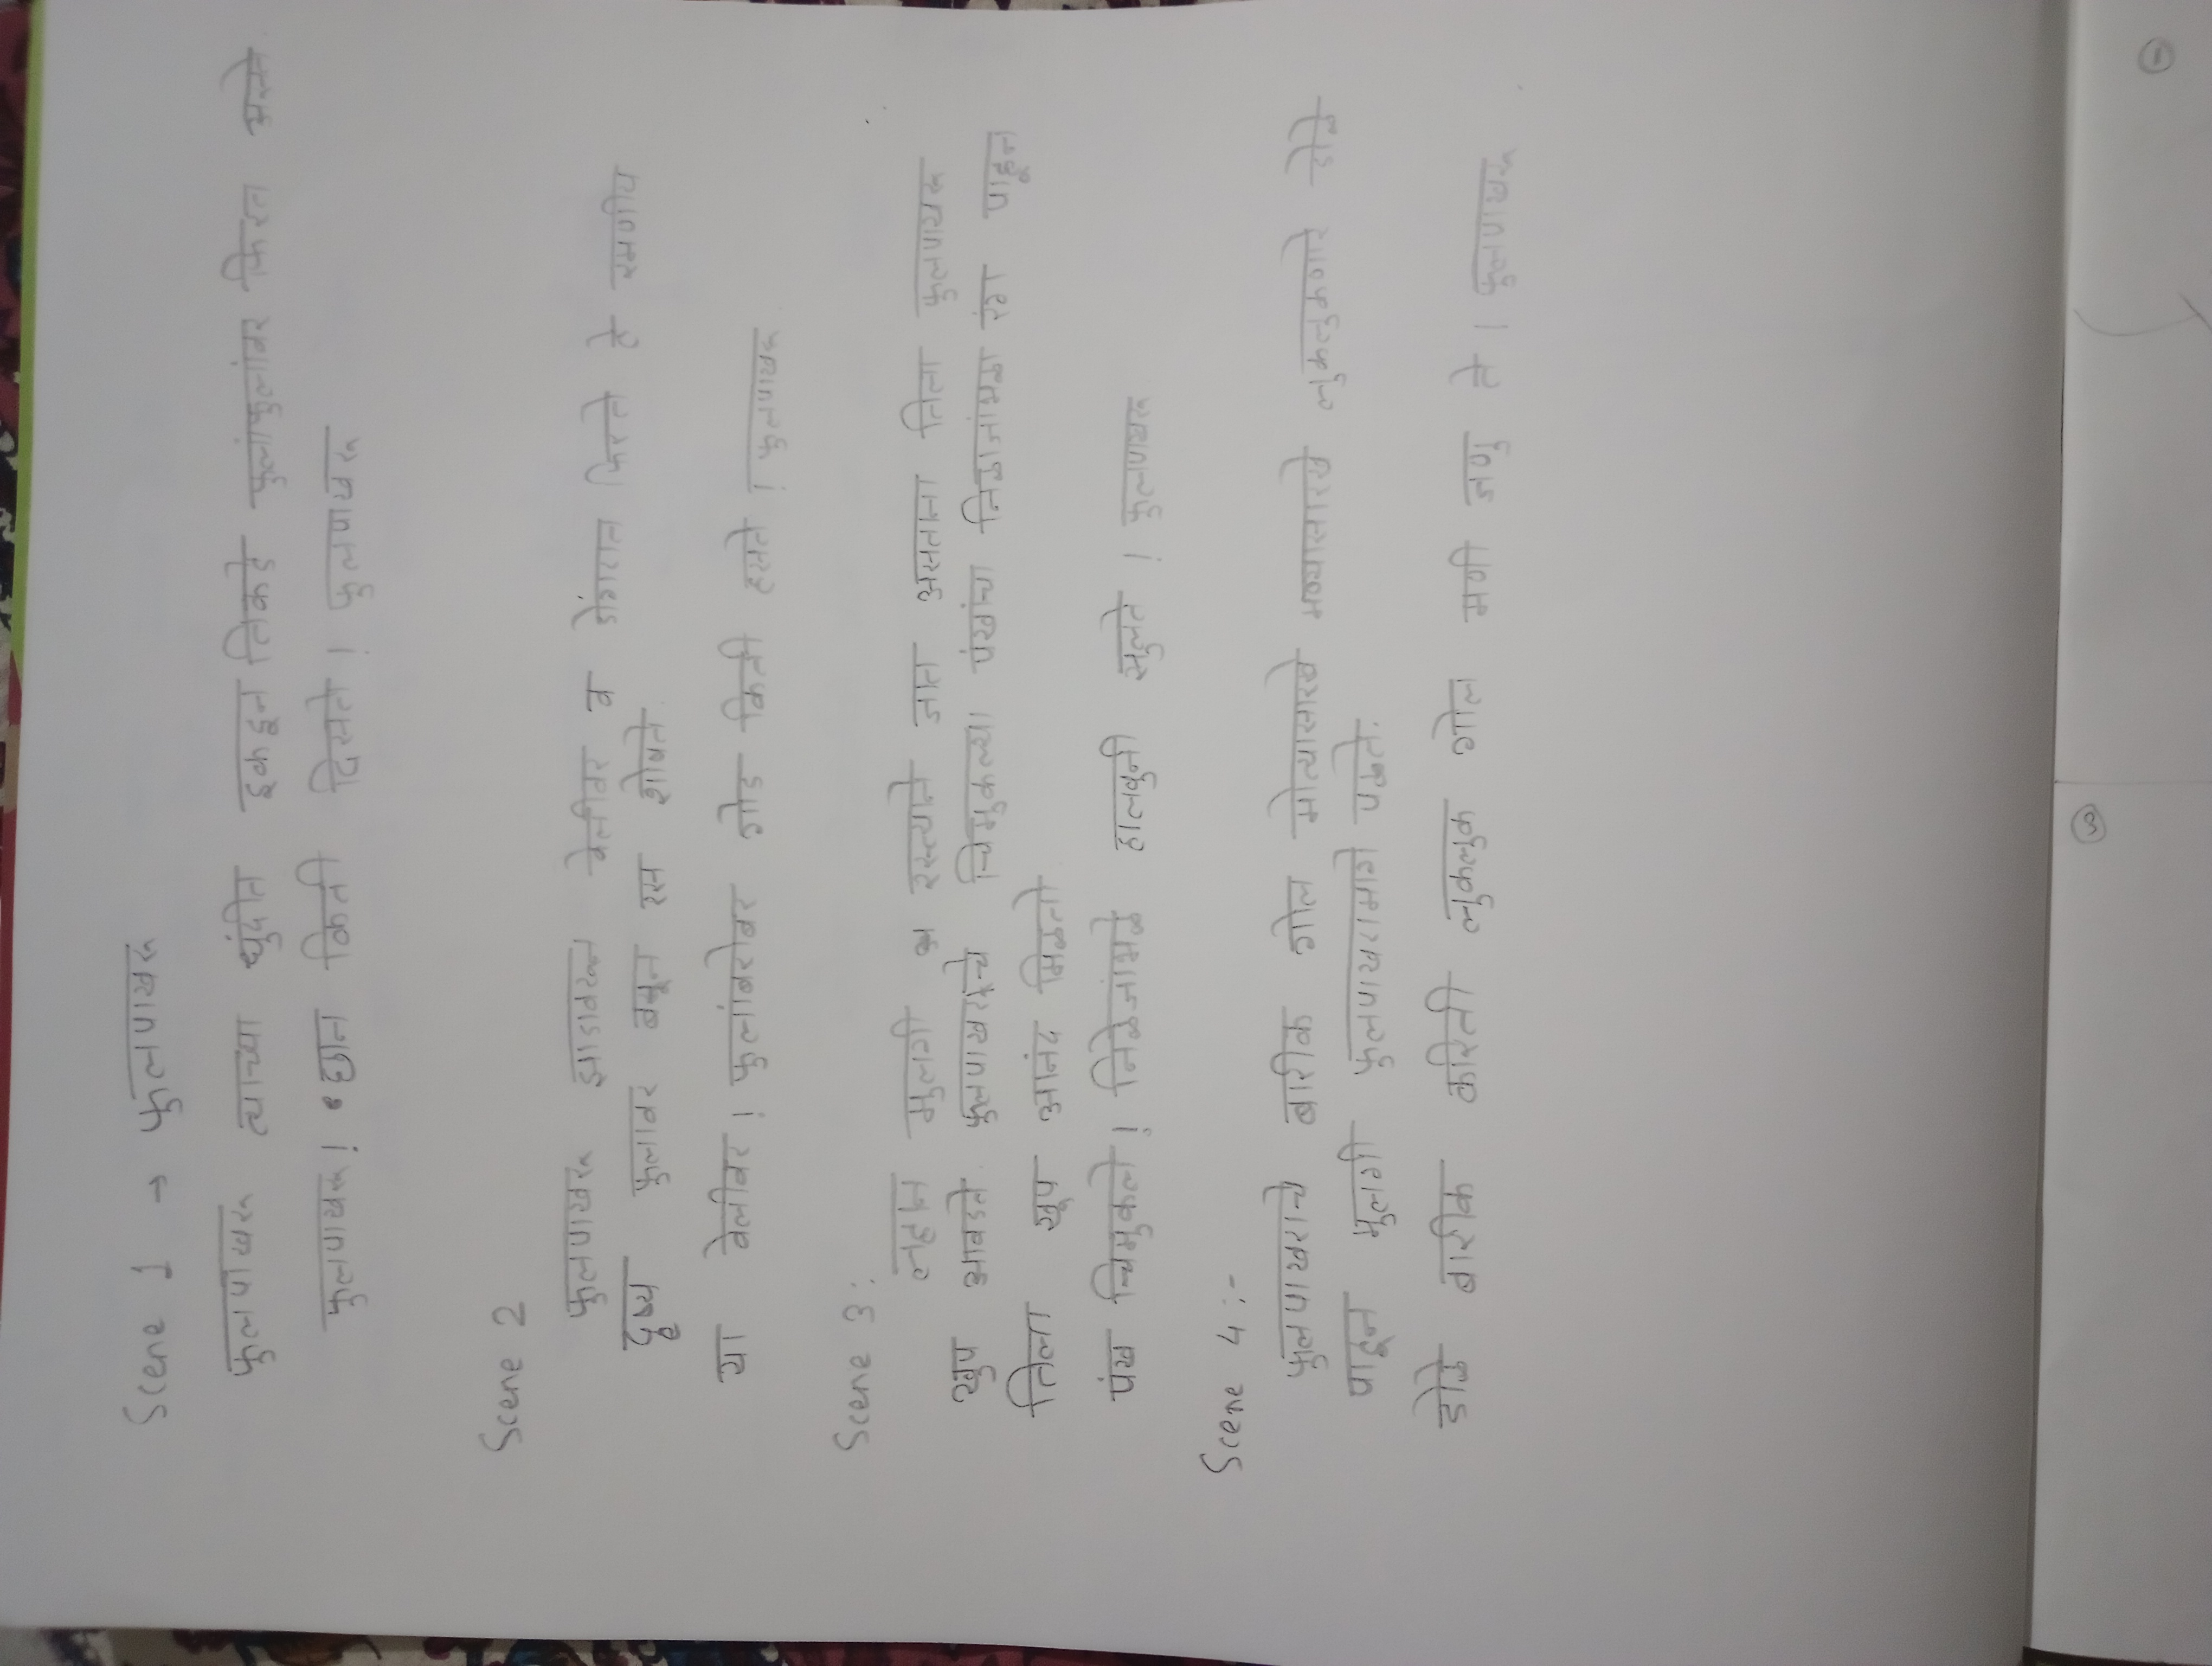 Scene 1 → फुलपाखरू
फुलपाखरू त्याच्या धुंदीत इकडून तिकडे फुलांफुलांवर फिरत असते
फुलपाखरू! छान किती दिसते! फुलपाखरू
Scene 2
फुलपाखरू झाडावरून वेलीवर व डोंगरात फिरते हे रमणीय
दृष्य फुलावर बसून रस शोषते.
या वेलीवर! फुलांबरोबर गोड किती हसते! फुलपाखरू
Scene 3:
लहान मुलगी रस्त्याने जात असताना तिला फुलपाखरू
खुप आवडते. फुलपाखराचे चिमुकल्या पंखांचा निळाजांभळा रंग पाहून
तिला खूप आनंद मिळतो
पंख चिमुकले! निळेजांभळे हालवुनी झुलते! फुलपाखरू
Scene 4:-
फुलपाखराचे बारीक गोल मोत्यासारखे मण्यासारखे लुकलुकणारे डोळे
पाहून मुलगी फुलपाखरामागे पळते.
डोळे बारीक करिती लुकलुक गोल मणी जणु ते। फुलपाखरू
3
1